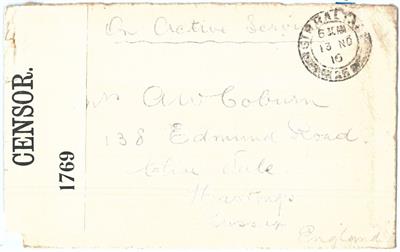 On Active Service
GIBRALTAR
6 AM
13 NO
16
CENSOR.
1769
A W Coburn
138 Edmund Road.
Clive Vale
Hastings
Sussex
England